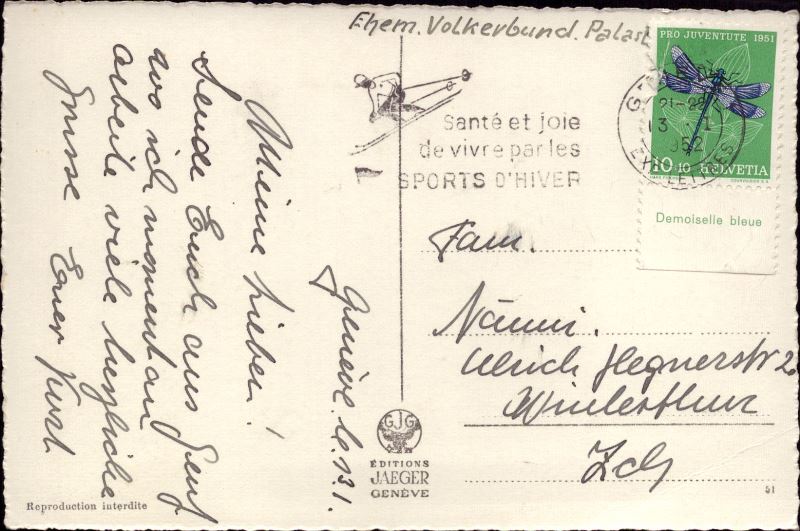 Ehem. Volkerbund. Palast
PRO JUVENTUTE 1951
21-22
13 1
1952
EXP. LETTRES
10+10 HELVETIA
Demoiselle bleue
Santé et joie
de vivre par les
SPORTS D'HIVER
Genève. 13.1.
Meine Lieben!
Sende Euch aus Genf
wo ich momentan
arbeite viele herzliche
Grüsse Euer Kurt
Fam.
Nänni.
Ulrich Hegnerstr 2.
Winterthur
Zch
GJG
ÉDITIONS
JAEGER
GENÈVE
Reproduction interdite
51